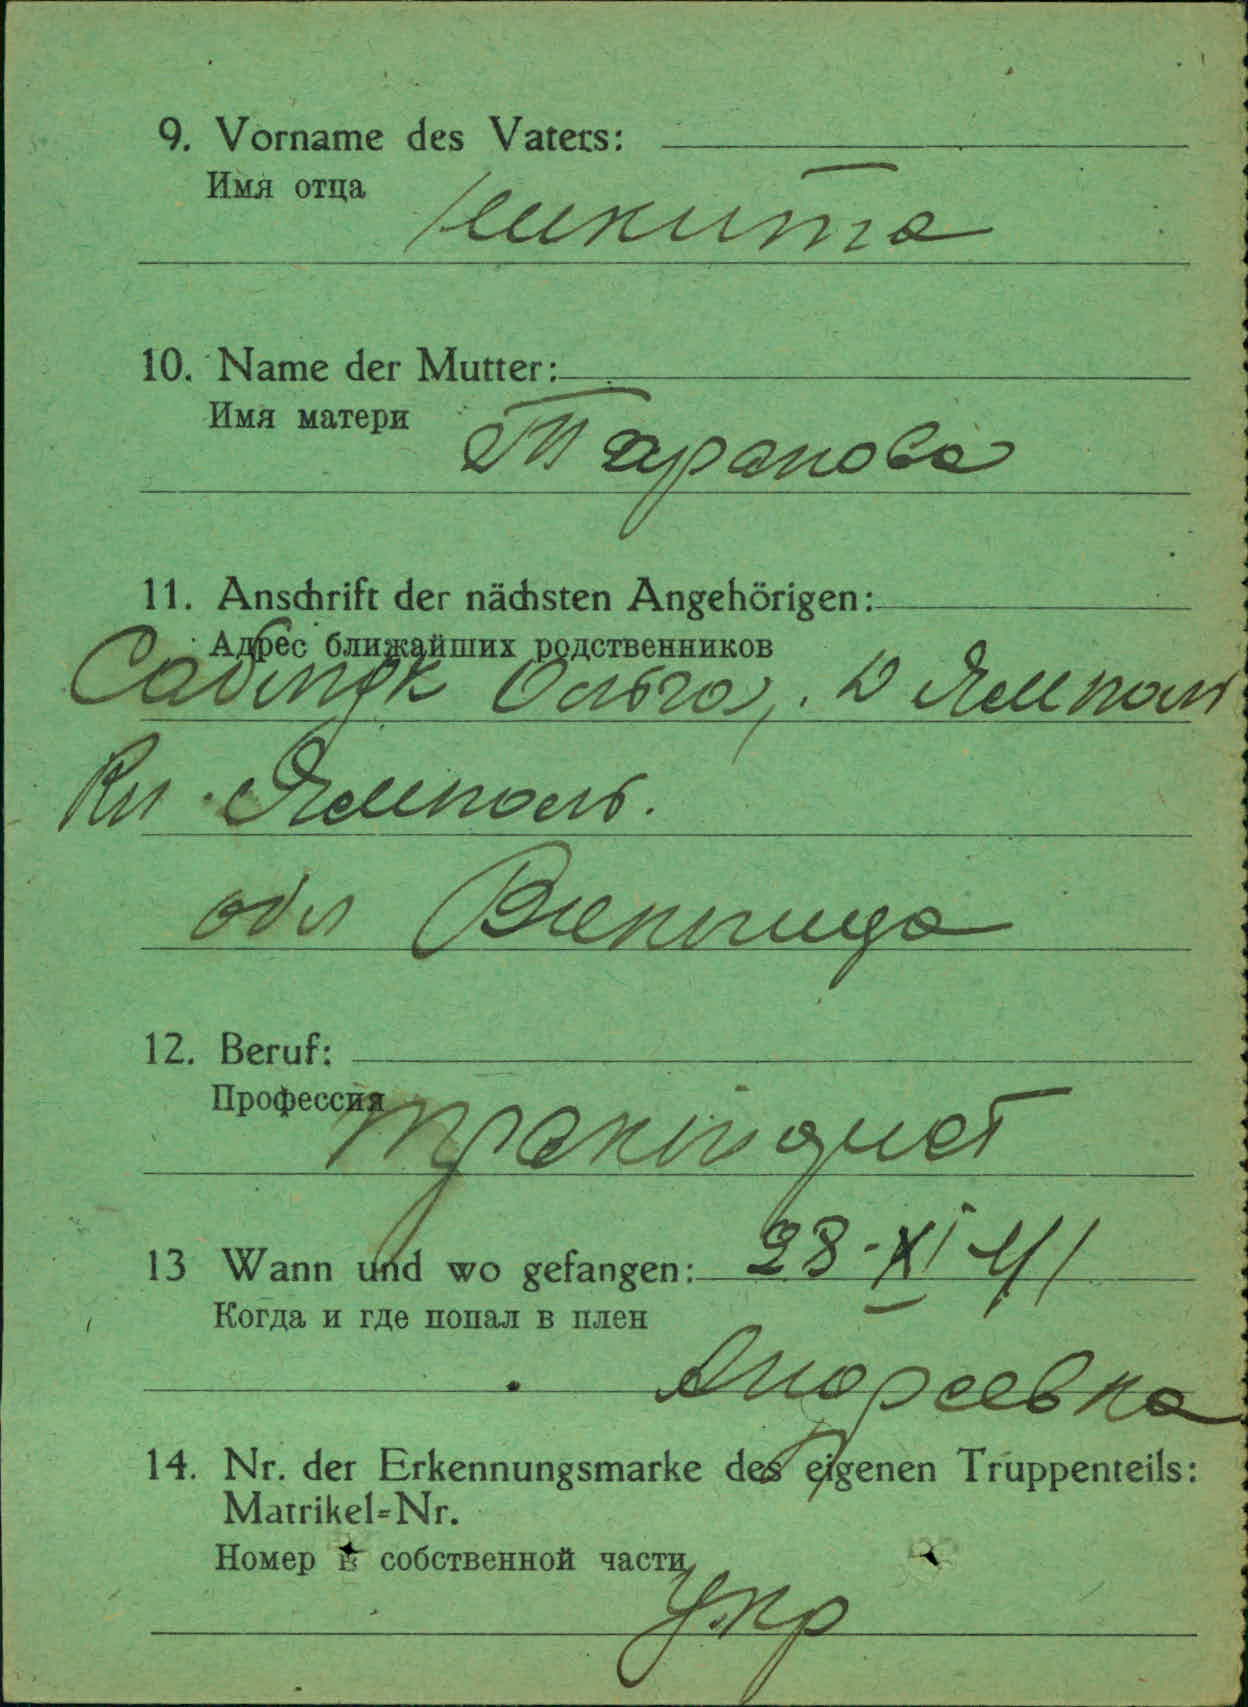 9. Vorname des Vaters:
Имя отца
Никита
10. Name der Mutter:
Имя матери
Таранова
11. Anschrift der nächsten Angehörigen:
Адрес ближайших родственников
Ольга, Ямполь
Ямполь.
обл Винница
12. Beruf:
Профессия
тракторист
13 Wann und wo gefangen: 28-XI-41
Когда и где попал в плен
Андреевка
14. Nr. der Erkennungsmarke des eigenen Truppenteils:
Matrikel=Nr.
Номер в собственной части
Укр